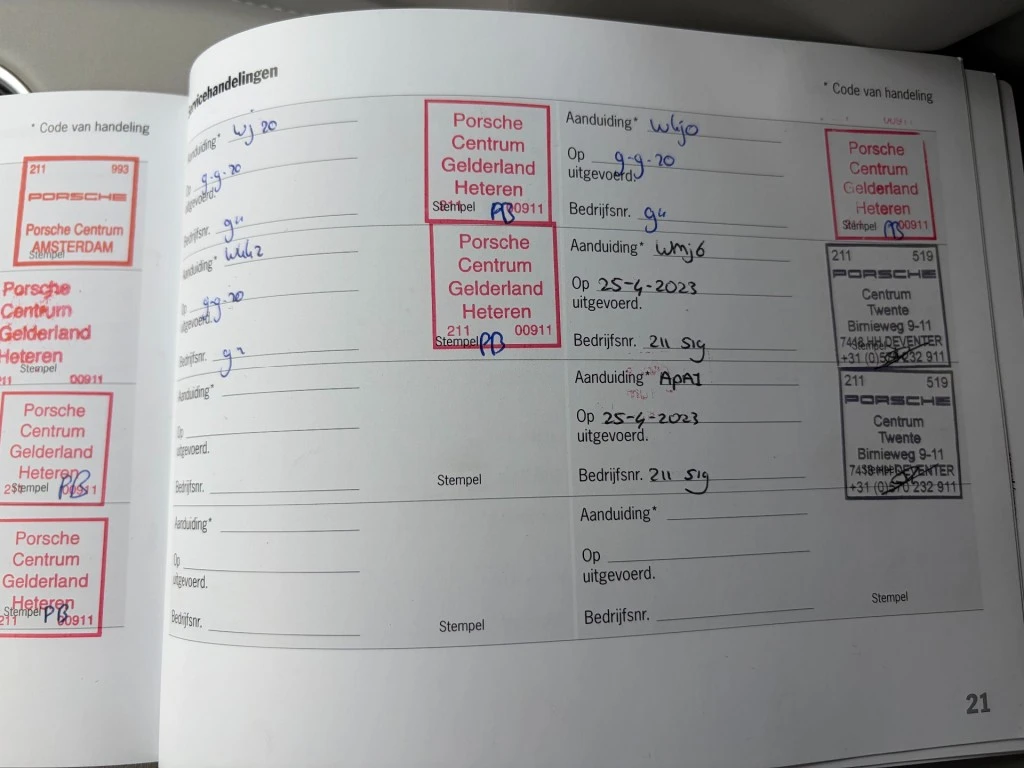 * Code van handeling
211 993
PORSCHE
Porsche Centrum
AMSTERDAM
Stempel
Porsche
Centrum
Gelderland
Heteren
Stempel
211 00911
Porsche
Centrum
Gelderland
Heteren
Stempel PB
211 00911
Porsche
Centrum
Gelderland
Heteren
Stempel PB
211 00911
rvicehandelingen
Aanduiding* Wj 20
Op 9-9-20
uitgevoerd.
Bedrijfsnr.
Porsche
Centrum
Gelderland
Heteren
Stempel PB 00911
Aanduiding*
Op 9-9-20
uitgevoerd.
Bedrijfsnr.
Porsche
Centrum
Gelderland
Heteren
211 00911
Stempel PB
Aanduiding*
Op
uitgevoerd.
Bedrijfsnr.
Stempel
Aanduiding*
Op
uitgevoerd.
Bedrijfsnr.
Stempel
* Code van handeling
Aanduiding* Wkj0
Op 9-9-20
uitgevoerd.
Bedrijfsnr.
Porsche
Centrum
Gelderland
Heteren
Stempel PB 00911
Aanduiding* Wmj6
Op 25-4-2023
uitgevoerd.
Bedrijfsnr. 211 sig
211 519
PORSCHE
Centrum
Twente
Birnieweg 9-11
7418 HH DEVENTER
+31 (0)570 232 911
Aanduiding* APA1
Op 25-4-2023
uitgevoerd.
Bedrijfsnr. 211 sig
211 519
PORSCHE
Centrum
Twente
Birnieweg 9-11
7418 HH DEVENTER
+31 (0)570 232 911
Aanduiding*
Op
uitgevoerd.
Bedrijfsnr.
Stempel
21